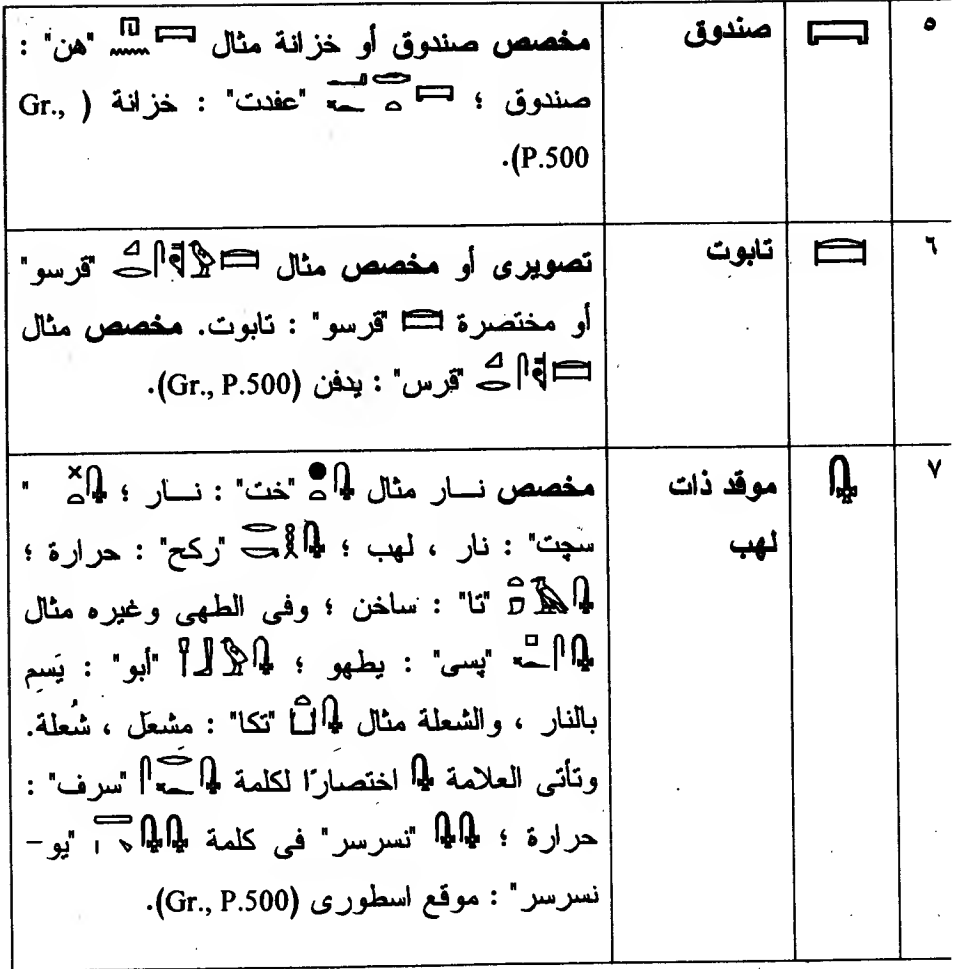 ٥ صندوق مخصص صندوق أو خزانة مثال "هن" :
صندوق ؛ "عفدت" : خزانة (Gr.,
P.500).
٦ تابوت تصويرى أو مخصص مثال "قرسو"
أو مختصرة "قرسو" : تابوت. مخصص مثال
"قرس" : يدفن (Gr., P.500).
٧ موقد ذات مخصص نــار مثال "خت" : نــار ؛ "
لهب سچت" : نار ، لهب ؛ "ركح" : حرارة ؛
"تا" : ساخن ؛ وفى الطهى وغيره مثال
"پسى" : يطهو ؛ "أبو" : يَسِم
بالنار ، والشعلة مثال "تكا" : مشعَل ، شُعلة.
وتأتى العلامة اختصارًا لكلمة "سرف" :
حرارة ؛ "نسرسر" فى كلمة "يو-
نسرسر" : موقع اسطورى (Gr., P.500).